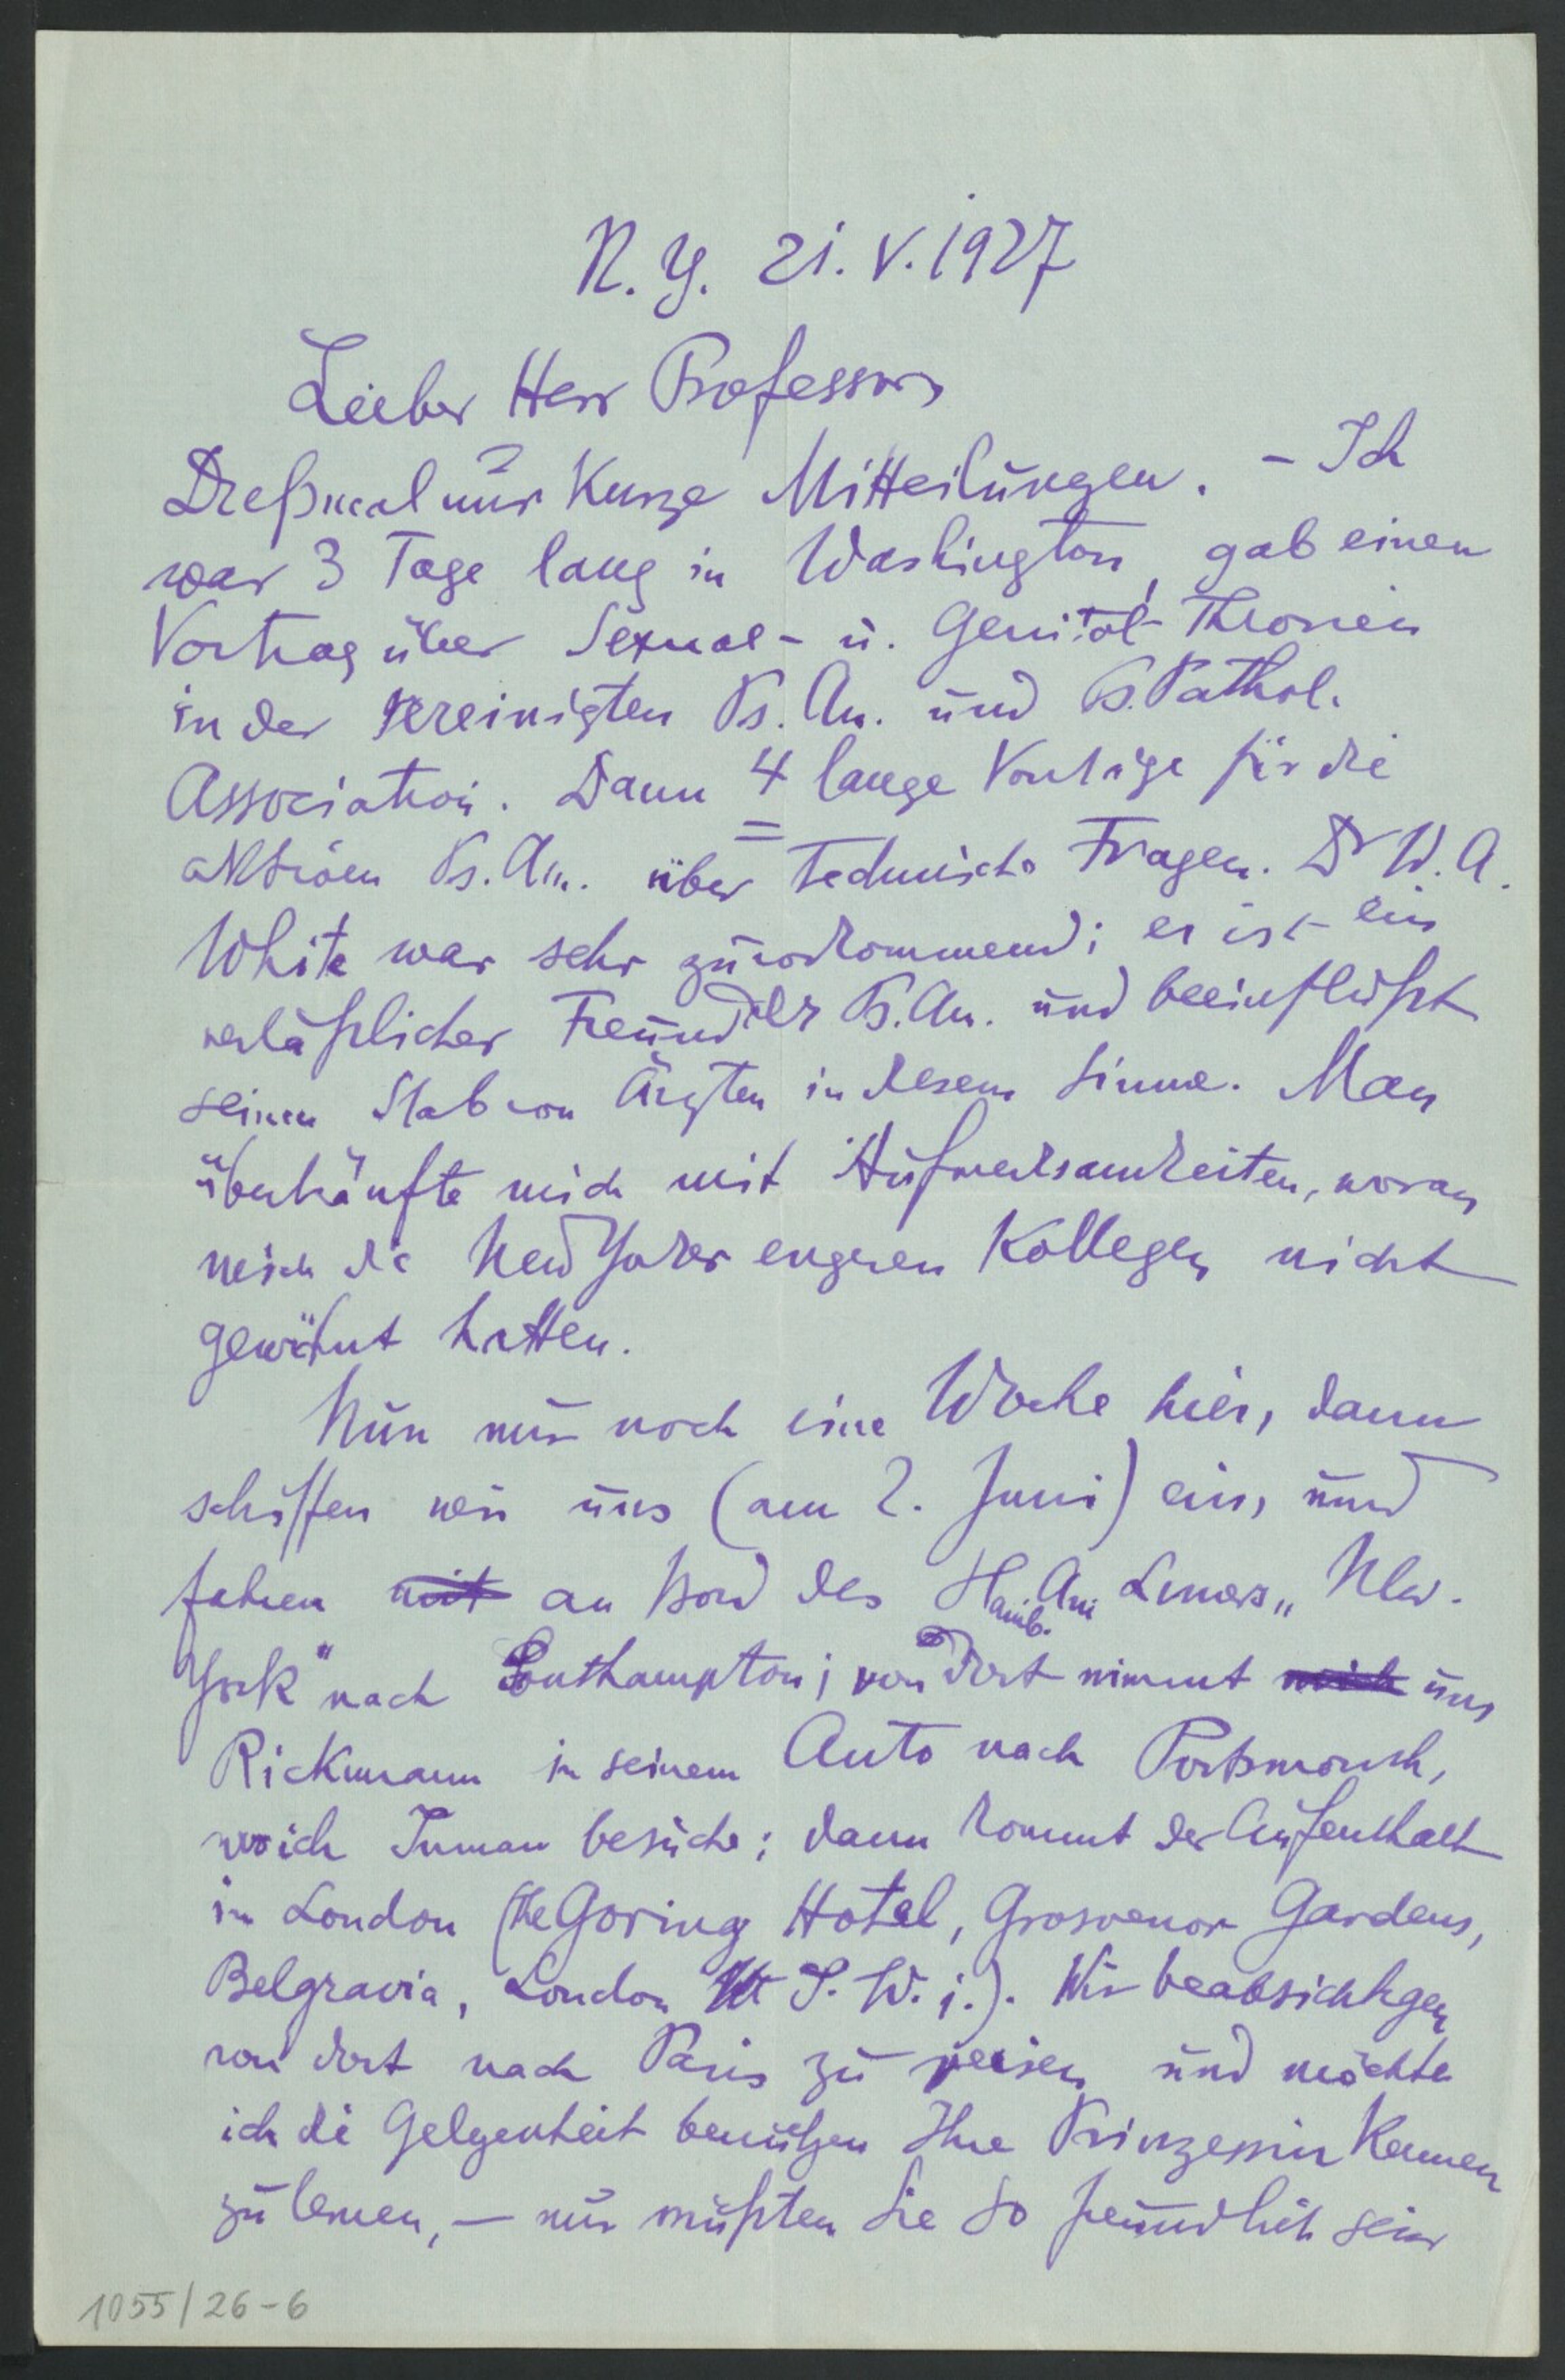 N. Y. 21. V. 1927
Lieber Herr Professor,
Dießmal nur Kurze Mitteilungen. – Ich
war 3 Tage lang in Washington, gab einen
Vortrag über Sexual- u. Genital-Theorien
in der Vereinigten Ps. An. und Ps. Pathol.
Association. Dann 4 lange Vorträge für die
aktiven Ps. An. über technische Fragen. Dr W. A.
White war sehr zuvorkommend; er ist ein
verläßlicher Freund der Ps. An. und beeinflußt
seinen Stab von Ärzten in diesem Sinne. Man
überhäufte mich mit Aufmerksamkeiten, woran
mich die New Yorker engeren Kollegen nicht
gewöhnt hatten.
Nun nur noch eine Woche hier, dann
schiffen wir uns (am 2. Juni) ein, und
fahren mit an Bord des Hamb. Am Liners „New-
York" nach Southampton; von dort nimmt mich uns
Rickmann in seinem Auto nach Portsmouth,
wo ich Inman besuche; dann kommt der Aufenthalt
in London (The Goring Hotel, Grosvenor Gardens,
Belgravia, London S. W. 1.). Wir beabsichtigen
von dort nach Paris zu reisen und möchte
ich die Gelgenheit benützen Ihre Prinzessin Kennen
zu lernen, – nur müßten Sie so freundlich sein
1055/26-6